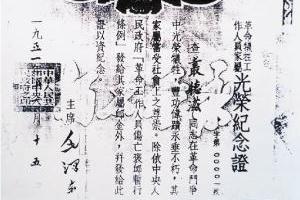 革命犧牲工
作人員家屬光榮紀念證
字第0000一號
查 同志在革命鬥爭
中光榮犧牲，豐功偉蹟永垂不朽，其
家屬當受社會上之尊崇。除依中央人
民政府「革命工作人員傷亡褒卹暫行
條例」發給其家屬卹金外，并發給此
證以資紀念。
主席 毛澤東
一九五 月十五